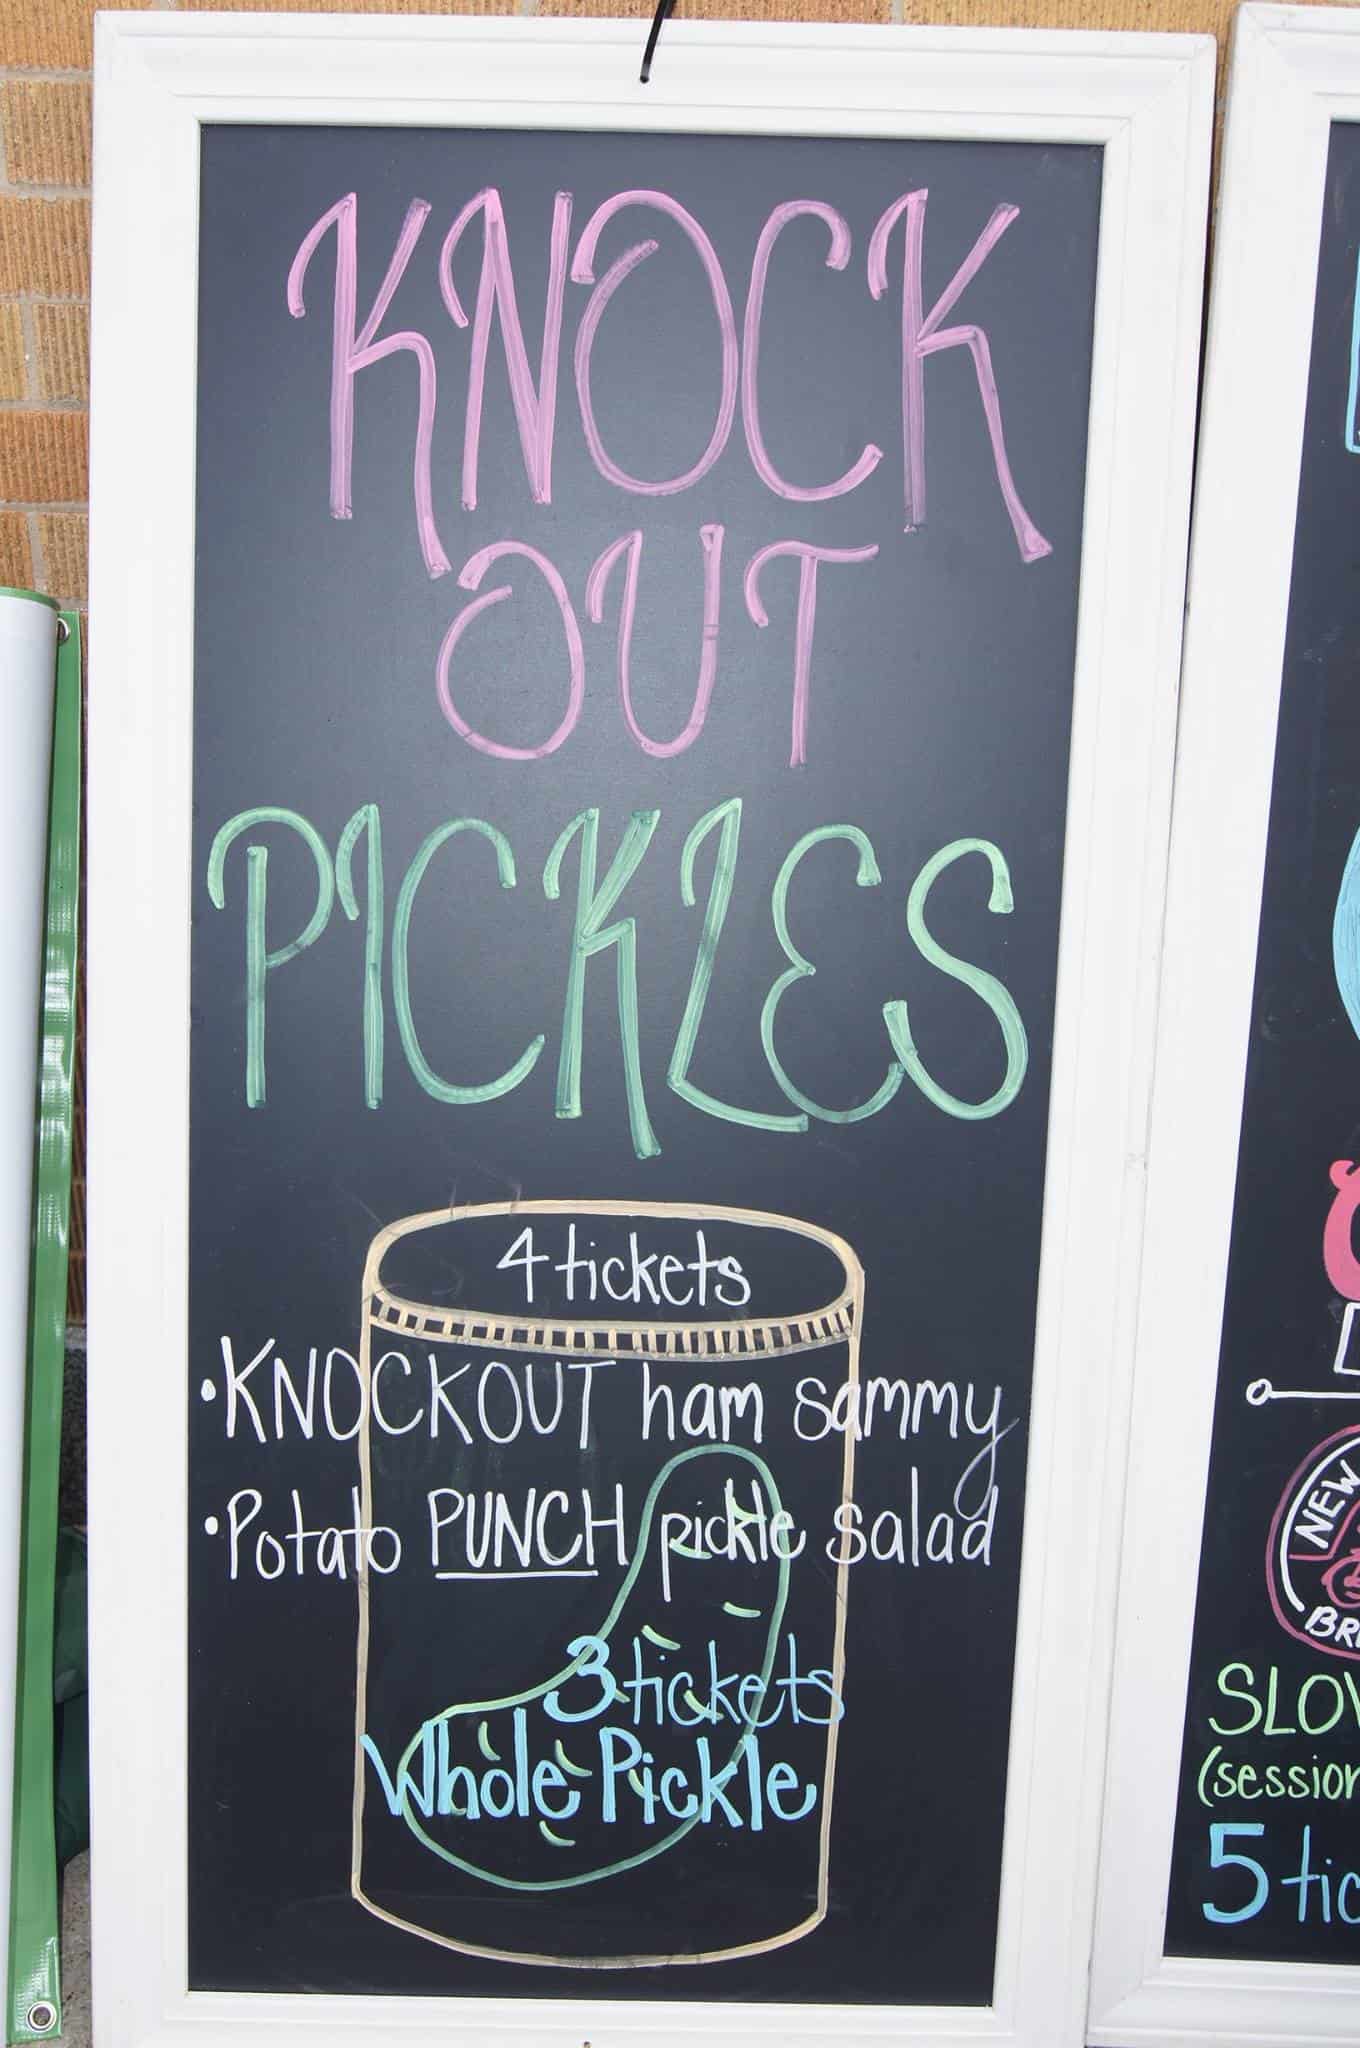 KNOCK
OUT
PICKLES
4 tickets
•KNOCKOUT ham sammy
•Potato PUNCH pickle salad
3 tickets
Whole Pickle
NEW
(session
5